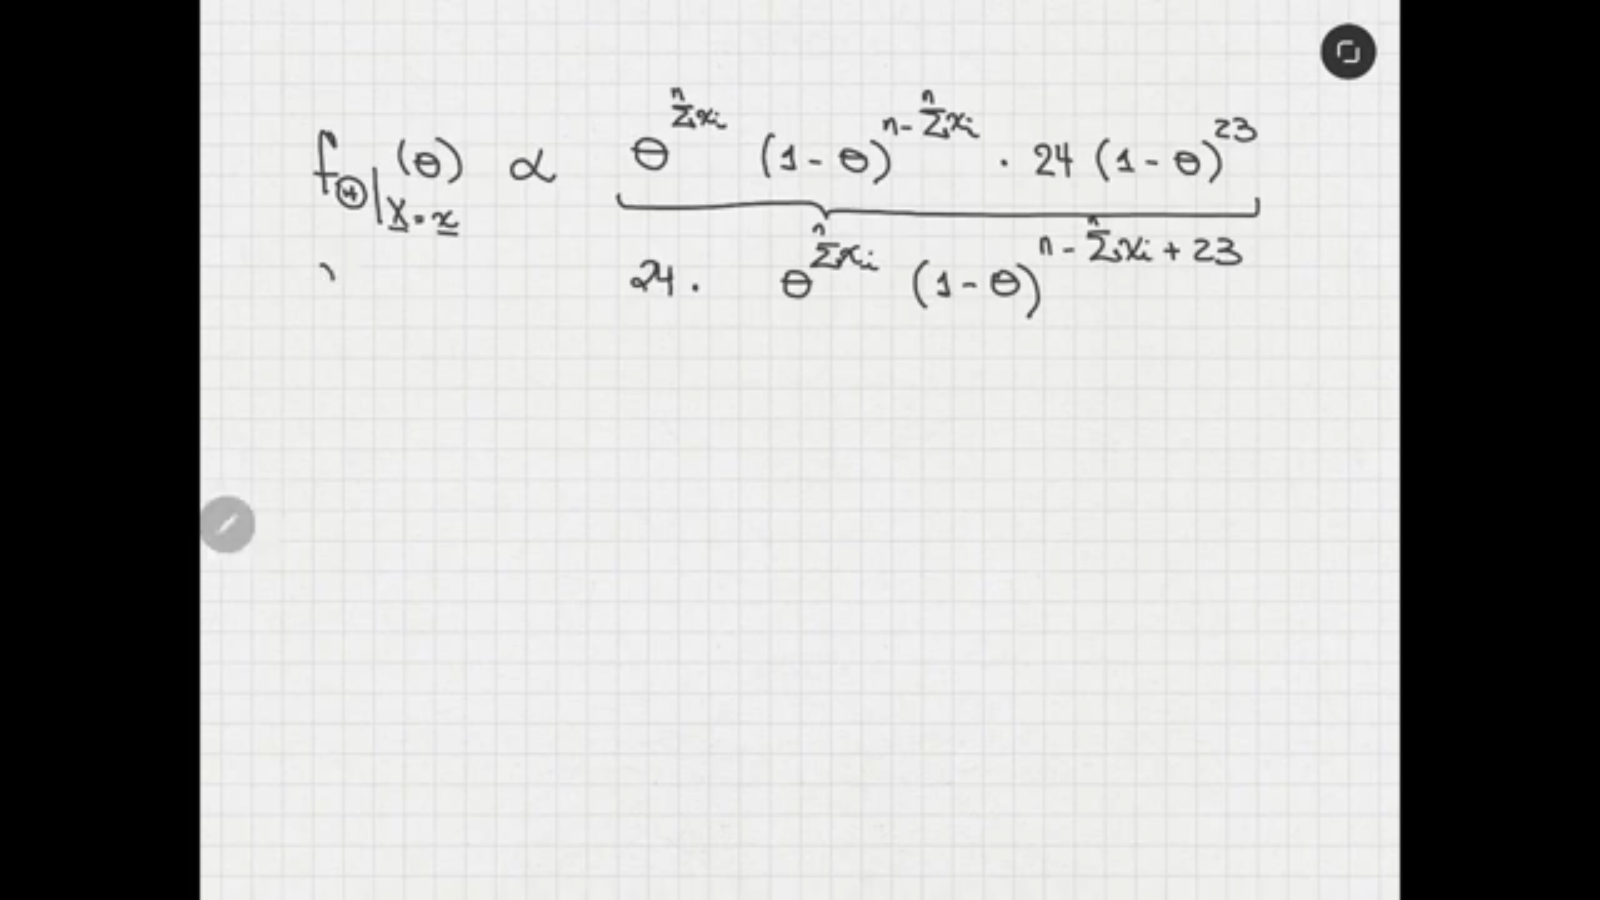 f_Θ|X=x (θ) ∝ θ^(Σ^n xi) (1-θ)^(n-Σ^n xi) · 24 (1-θ)^23
24 · θ^(Σ^n xi) (1-θ)^(n-Σ^n xi + 23)